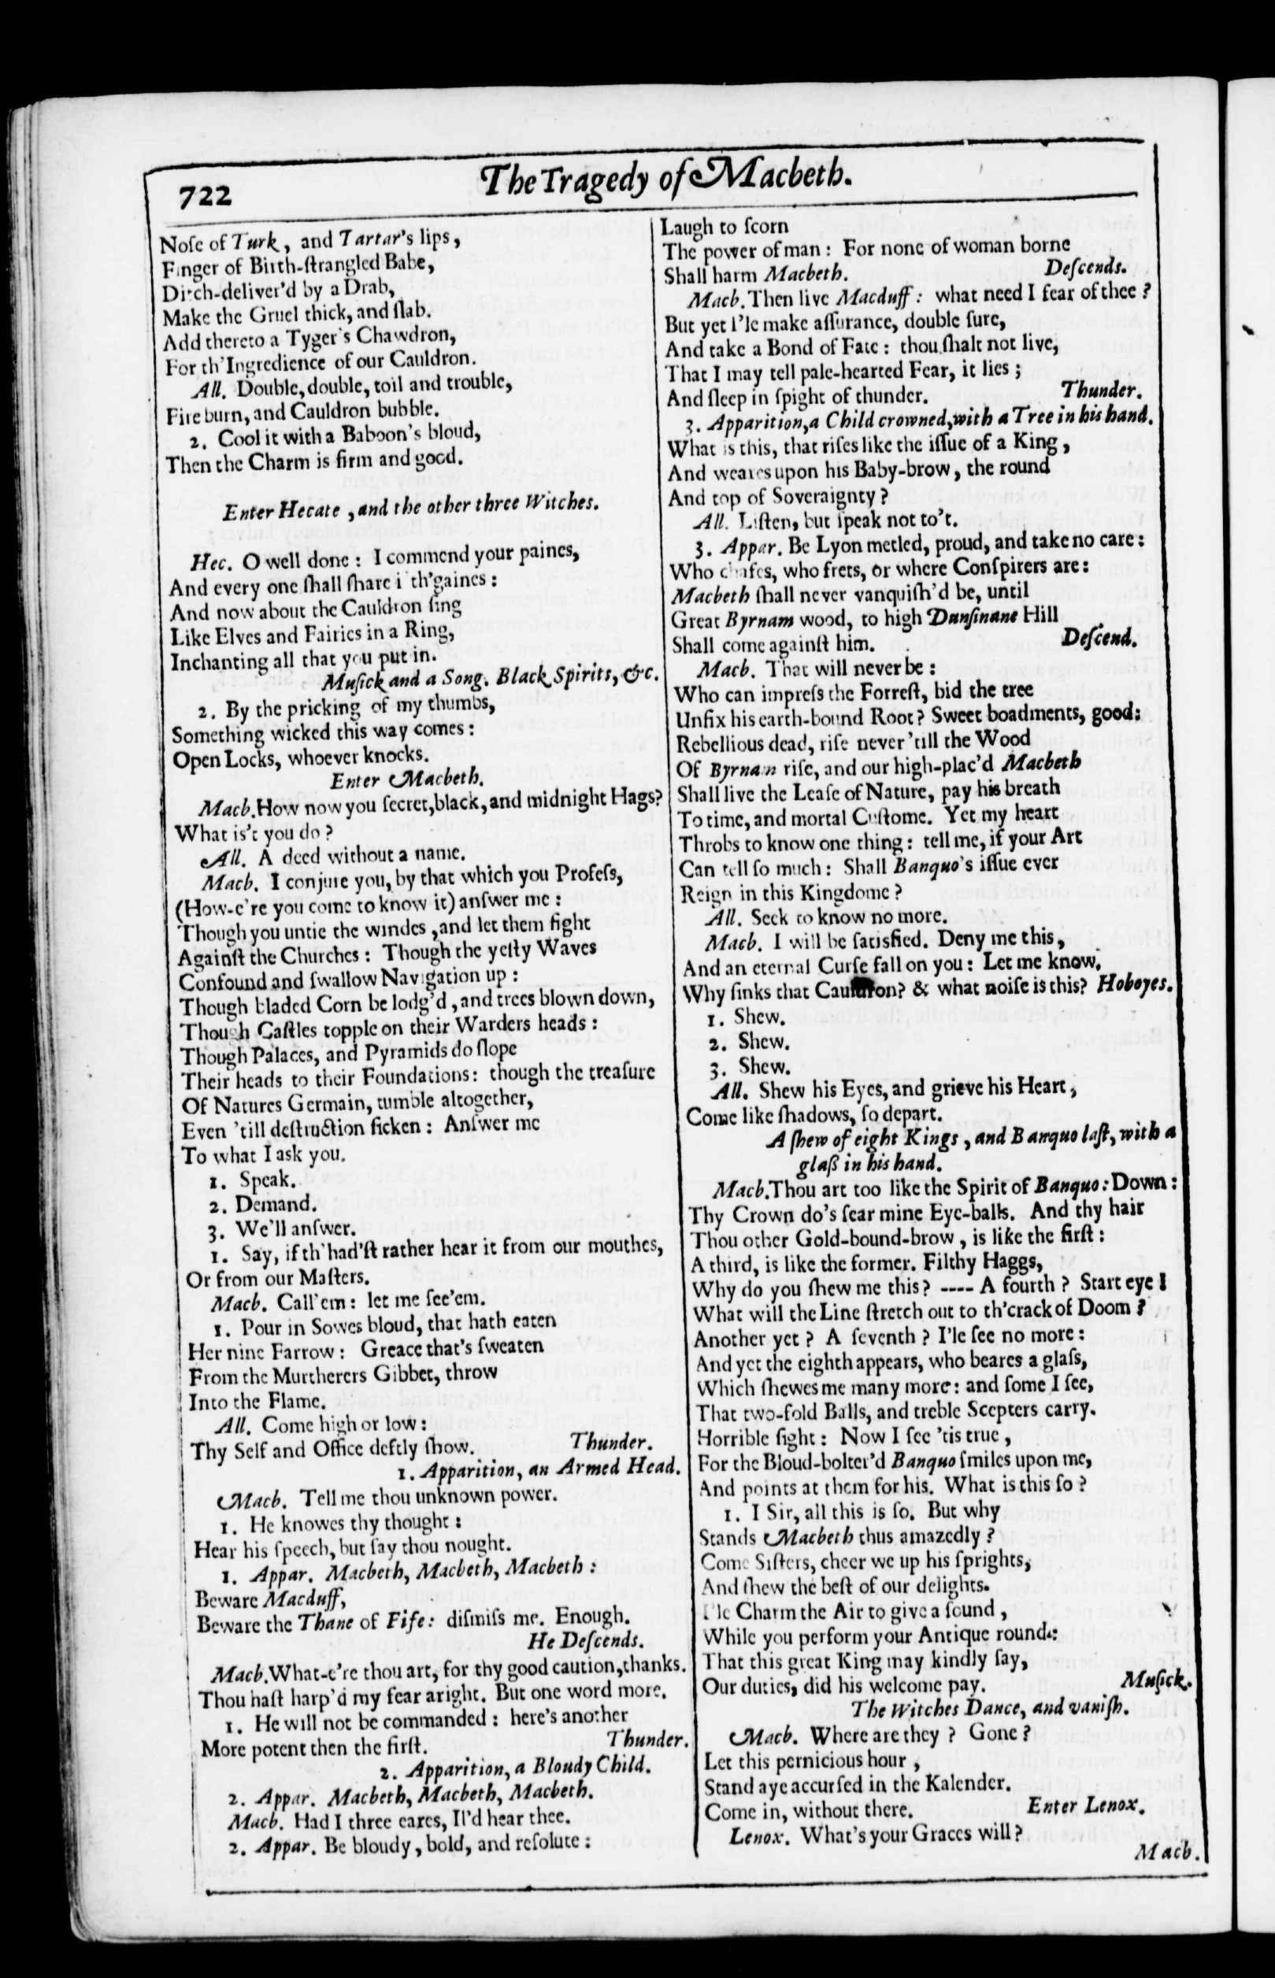 722
The Tragedy of Macbeth.
Noſe of Turk, and Tartar's lips,
Finger of Birth-ſtrangled Babe,
Ditch-deliver'd by a Drab,
Make the Gruel thick, and ſlab.
Add thereto a Tyger's Chawdron,
For th'Ingredience of our Cauldron.
All. Double, double, toil and trouble,
Fire burn, and Cauldron bubble.
2. Cool it with a Baboon's bloud,
Then the Charm is firm and good.
Enter Hecate, and the other three Witches.
Hec. O well done: I commend your paines,
And every one ſhall ſhare i' th'gaines:
And now about the Cauldron ſing
Like Elves and Fairies in a Ring,
Inchanting all that you put in.
Muſick and a Song. Black Spirits, &c.
2. By the pricking of my thumbs,
Something wicked this way comes:
Open Locks, whoever knocks.
Enter Macbeth.
Macb. How now you ſecret, black, and midnight Hags?
What is't you do?
All. A deed without a name.
Macb. I conjure you, by that which you Profeſs,
(How-e're you come to know it) anſwer me:
Though you untie the windes, and let them fight
Againſt the Churches: Though the yeſty Waves
Confound and ſwallow Navigation up:
Though bladed Corn be lodg'd, and trees blown down,
Though Caſtles topple on their Warders heads:
Though Palaces, and Pyramids do ſlope
Their heads to their Foundations: though the treaſure
Of Natures Germain, tumble altogether,
Even 'till deſtruction ſicken: Anſwer me
To what I ask you.
1. Speak.
2. Demand.
3. We'll anſwer.
1. Say, if th'had'ſt rather hear it from our mouthes,
Or from our Maſters.
Macb. Call'em: let me ſee'em.
1. Pour in Sowes bloud, that hath eaten
Her nine Farrow: Greace that's ſweaten
From the Murtherers Gibbet, throw
Into the Flame.
All. Come high or low:
Thy Self and Office deftly ſhow. Thunder.
1. Apparition, an Armed Head.
Macb. Tell me thou unknown power.
1. He knowes thy thought:
Hear his ſpeech, but ſay thou nought.
1. Appar. Macbeth, Macbeth, Macbeth:
Beware Macduff,
Beware the Thane of Fife: diſmiſs me. Enough.
He Deſcends.
Macb. What-e're thou art, for thy good caution, thanks.
Thou haſt harp'd my fear aright. But one word more.
1. He will not be commanded: here's another
More potent then the firſt. Thunder.
2. Apparition, a Bloudy Child.
2. Appar. Macbeth, Macbeth, Macbeth.
Macb. Had I three eares, Il'd hear thee.
2. Appar. Be bloudy, bold, and reſolute:
Laugh to ſcorn
The power of man: For none of woman borne
Shall harm Macbeth. Deſcends.
Macb. Then live Macduff: what need I fear of thee?
But yet I'le make aſſurance, double ſure,
And take a Bond of Fate: thou ſhalt not live,
That I may tell pale-hearted Fear, it lies;
And ſleep in ſpight of thunder. Thunder.
3. Apparition, a Child crowned, with a Tree in his hand.
What is this, that riſes like the iſſue of a King,
And weares upon his Baby-brow, the round
And top of Soveraignty?
All. Liſten, but ſpeak not to't.
3. Appar. Be Lyon metled, proud, and take no care:
Who chafes, who frets, or where Conſpirers are:
Macbeth ſhall never vanquiſh'd be, until
Great Byrnam wood, to high Dunſinane Hill
Shall come againſt him. Deſcend.
Macb. That will never be:
Who can impreſs the Forreſt, bid the tree
Unfix his earth-bound Root? Sweet boadments, good:
Rebellious dead, riſe never 'till the Wood
Of Byrnam riſe, and our high-plac'd Macbeth
Shall live the Leaſe of Nature, pay his breath
To time, and mortal Cuſtome. Yet my heart
Throbs to know one thing: tell me, if your Art
Can tell ſo much: Shall Banquo's iſſue ever
Reign in this Kingdome?
All. Seek to know no more.
Macb. I will be ſatisfied. Deny me this,
And an eternal Curſe fall on you: Let me know,
Why ſinks that Cauldron? & what noiſe is this? Hoboyes.
1. Shew.
2. Shew.
3. Shew.
All. Shew his Eyes, and grieve his Heart,
Come like ſhadows, ſo depart.
A ſhew of eight Kings, and Banquo laſt, with a
glaß in his hand.
Macb. Thou art too like the Spirit of Banquo: Down:
Thy Crown do's ſear mine Eye-balls. And thy hair
Thou other Gold-bound-brow, is like the firſt:
A third, is like the former. Filthy Haggs,
Why do you ſhew me this? ---- A fourth? Start eye!
What will the Line ſtretch out to th'crack of Doom?
Another yet? A ſeventh? I'le ſee no more:
And yet the eighth appears, who beares a glaſs,
Which ſhewes me many more: and ſome I ſee,
That two-fold Balls, and treble Scepters carry.
Horrible ſight: Now I ſee 'tis true,
For the Bloud-bolter'd Banquo ſmiles upon me,
And points at them for his. What is this ſo?
1. I Sir, all this is ſo. But why
Stands Macbeth thus amazedly?
Come Siſters, cheer we up his ſprights,
And ſhew the beſt of our delights.
I'le Charm the Air to give a ſound,
While you perform your Antique round:
That this great King may kindly ſay,
Our duties, did his welcome pay. Muſick.
The Witches Dance, and vaniſh.
Macb. Where are they? Gone?
Let this pernicious hour,
Stand aye accurſed in the Kalender.
Come in, without there. Enter Lenox.
Lenox. What's your Graces will?
Macb.